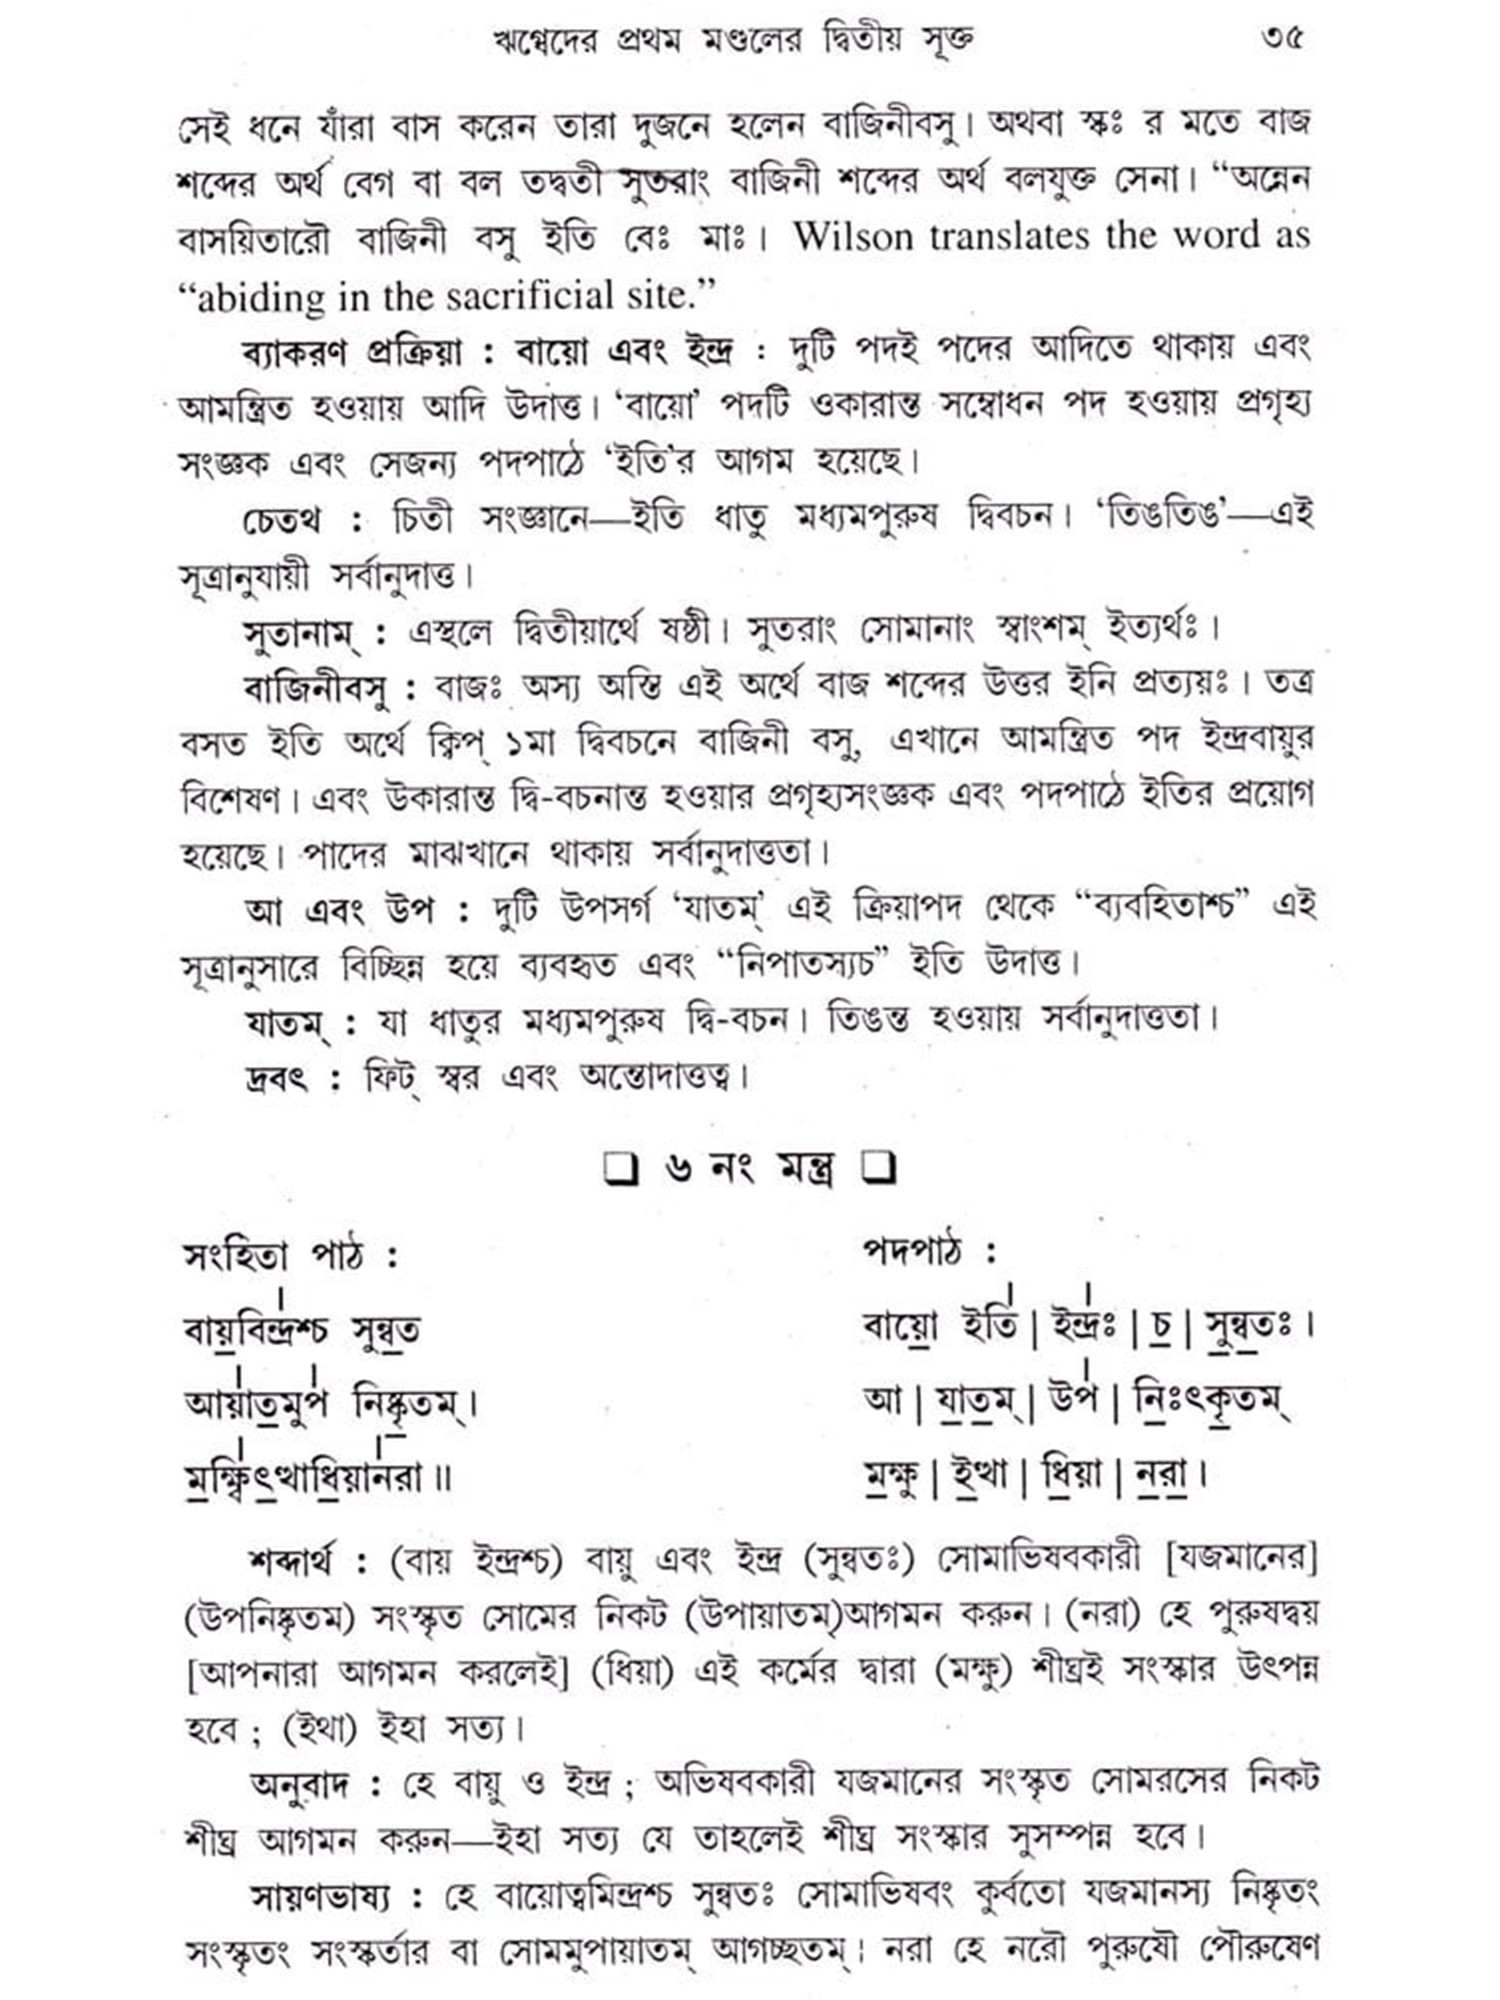 ঋগ্বেদের প্রথম মণ্ডলের দ্বিতীয় সূক্ত ৩৫
সেই ধনে যাঁরা বাস করেন তারা দুজনে হলেন বাজিনীবসু। অথবা স্কঃ র মতে বাজ
শব্দের অর্থ বেগ বা বল তদ্বতী সুতরাং বাজিনী শব্দের অর্থ বলযুক্ত সেনা। “অন্নেন
বাসয়িতারৌ বাজিনী বসু ইতি বেঃ মাঃ। Wilson translates the word as
“abiding in the sacrificial site.”
ব্যাকরণ প্রক্রিয়া : বায়ো এবং ইন্দ্র : দুটি পদই পদের আদিতে থাকায় এবং
আমন্ত্রিত হওয়ায় আদি উদাত্ত। ‘বায়ো’ পদটি ওকারান্ত সম্বোধন পদ হওয়ায় প্রগৃহ্য
সংজ্ঞক এবং সেজন্য পদপাঠে ‘ইতি’র আগম হয়েছে।
চেতথ : চিতী সংজ্ঞানে—ইতি ধাতু মধ্যমপুরুষ দ্বিবচন। ‘তিঙতিঙ’—এই
সূত্রানুযায়ী সর্বানুদাত্ত।
সুতানাম্ : এস্থলে দ্বিতীয়ার্থে ষষ্ঠী। সুতরাং সোমানাং স্বাংশম্ ইত্যর্থঃ।
বাজিনীবসু : বাজঃ অস্য অস্তি এই অর্থে বাজ শব্দের উত্তর ইনি প্রত্যয়ঃ। তত্র
বসত ইতি অর্থে ক্বিপ্ ১মা দ্বিবচনে বাজিনী বসু, এখানে আমন্ত্রিত পদ ইন্দ্রবায়ুর
বিশেষণ। এবং উকারান্ত দ্বি-বচনান্ত হওয়ার প্রগৃহ্যসংজ্ঞক এবং পদপাঠে ইতির প্রয়োগ
হয়েছে। পাদের মাঝখানে থাকায় সর্বানুদাত্ততা।
আ এবং উপ : দুটি উপসর্গ ‘যাতম্’ এই ক্রিয়াপদ থেকে “ব্যবহিতাশ্চ” এই
সূত্রানুসারে বিচ্ছিন্ন হয়ে ব্যবহৃত এবং “নিপাতস্যচ” ইতি উদাত্ত।
যাতম্ : যা ধাতুর মধ্যমপুরুষ দ্বি-বচন। তিঙন্ত হওয়ায় সর্বানুদাত্ততা।
দ্রবৎ : ফিট্ স্বর এবং অন্তোদাত্তত্ব।
❏ ৬ নং মন্ত্র ❏
সংহিতা পাঠ : পদপাঠ :
বায়॒বিন্দ্র॑শ্চ সুন্ব॒ত বায়ো॒ ইতি॑ | ইন্দ্রঃ॑ | চ॒ | সু॒ন্ব॒তঃ।
আয়া॑ত॒মুপ॑ নিষ্কৃ॒তম্। আ | যা॒ত॒ম্ | উপ॑ | নিঃ॒ৎকৃ॒তম্
ম॒ক্ষ্বি॑ৎ॒থাধি॒য়ান॑রা॥ ম॒ক্ষু | ই॒ত্থা | ধি॒য়া | ন॒রা॒।
শব্দার্থ : (বায় ইন্দ্রশ্চ) বায়ু এবং ইন্দ্র (সুন্বতঃ) সোমাভিষবকারী [যজমানের]
(উপনিষ্কৃতম) সংস্কৃত সোমের নিকট (উপায়াতম্)আগমন করুন। (নরা) হে পুরুষদ্বয়
[আপনারা আগমন করলেই] (ধিয়া) এই কর্মের দ্বারা (মক্ষু) শীঘ্রই সংস্কার উৎপন্ন
হবে ; (ইথা) ইহা সত্য।
অনুবাদ : হে বায়ু ও ইন্দ্র ; অভিষবকারী যজমানের সংস্কৃত সোমরসের নিকট
শীঘ্র আগমন করুন—ইহা সত্য যে তাহলেই শীঘ্র সংস্কার সুসম্পন্ন হবে।
সায়ণভাষ্য : হে বায়োত্বমিন্দ্রশ্চ সুন্বতঃ সোমাভিষবং কুর্বতো যজমানস্য নিষ্কৃতং
সংস্কৃতং সংস্কর্তার বা সোমমুপায়াতম্ আগচ্ছতম্। নরা হে নরৌ পুরুষৌ পৌরুষেণ